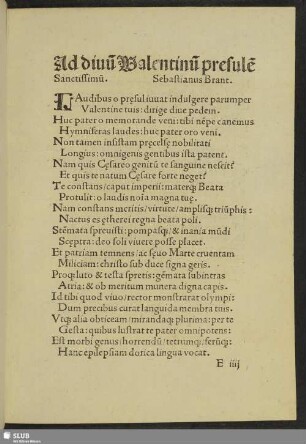 Ad diuū Valentinū presulē
Sanctissimū. Sebastianus Brant.
LAudibus o pręsul iuuat indulgere parumper
Valentine tuis: dirige diue pedem.
Huc pater o memorande veni: tibi nēpe canemus
Hymniferas laudes: huc pater oro veni.
Non tamen insistam pręcelsę nobilitati
Longius: omnigenis gentibus ista patent.
Nam quis Cęsareo genitū te sanguine nescit?
Et quis te natum Cęsare forte neget?
Te constans/caput imperii: materq; Beata
Protulit: o laudis noīa magna tuę.
Nam constans meritis/virtute/amplisq; triūphis:
Nactus es ętherei regna beata poli.
Stēmata spreuisti: pompasq;/& inania mūdi
Sceptra: deo soli viuere posse placet.
Et patriam temnens/ac sęuo Marte cruentam
Miliciam: christo sub duce signa geris.
Proq; luto & testa spretis: gēmata subintras
Atria: & ob meritum munera digna capis.
Id tibi quod viuo/rector monstrarat olympi:
Dum precibus curat languida membra tuis.
Vtq; alia obticeam/mirandaq; plurima: per te
Gesta: quibus lustrat te pater omnipotens:
Est morbi genus: horrendū/tetrumq;/ferūq;:
Hanc epilepsiam dorica lingua vocat.
E iiij
SLUB